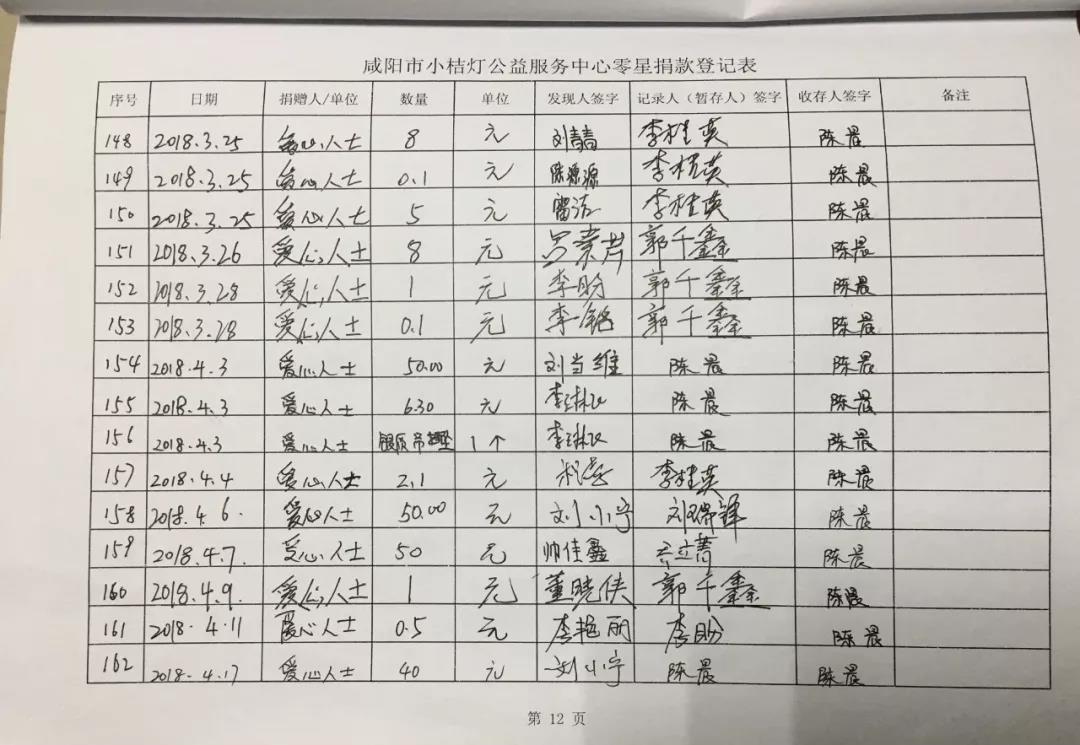 咸阳市小桔灯公益服务中心零星捐款登记表
序号 日期 捐赠人/单位 数量 单位 发现人签字 记录人（暂存人）签字 收存人签字 备注
148 2018.3.25 爱心人士 8 元 刘青青 李桂英 陈晨
149 2018.3.25 爱心人士 0.1 元 陈源源 李桂英 陈晨
150 2018.3.25 爱心人士 5 元 雷洁 李桂英 陈晨
151 2018.3.26 爱心人士 8 元 郭千鑫 陈晨
152 2018.3.28 爱心人士 1 元 李盼 郭千鑫 陈晨
153 2018.3.28 爱心人士 0.1 元 李铭 郭千鑫 陈晨
154 2018.4.3 爱心人士 50.00 元 刘当维 陈晨 陈晨
155 2018.4.3 爱心人士 6.30 元 陈晨 陈晨
156 2018.4.3 爱心人士 银质吊坠 1个 陈晨 陈晨
157 2018.4.4 爱心人士 2.1 元 李桂英 陈晨
158 2018.4.6. 爱心人士 50.00 元 刘小宁 刘瑞锋 陈晨
159 2018.4.7. 爱心人士 50 元 帅佳鑫 陈晨
160 2018.4.9. 爱心人士 1 元 董晓侠 郭千鑫 陈晨
161 2018.4.11 爱心人士 0.5 元 李艳丽 李盼 陈晨
162 2018.4.17 爱心人士 40 元 刘小宁 陈晨 陈晨
第 12 页